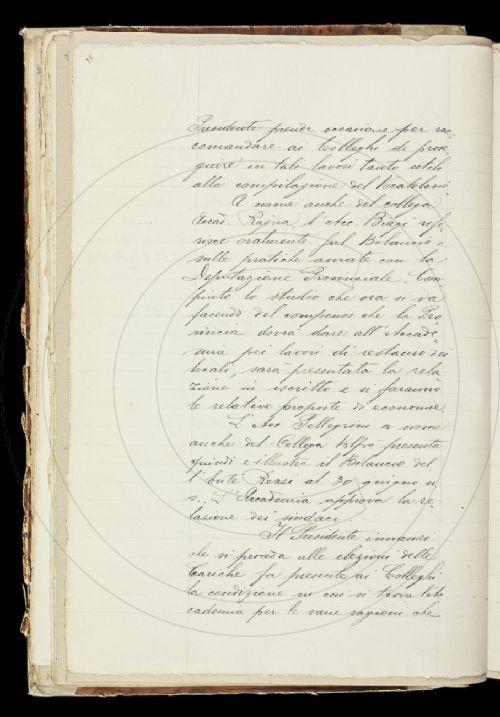 Presidente prende occasione per rac-
comandare ai Colleghi di prose-
guire in tali lavori tanto utili
alla compilazione del Vocabolario
A nome anche del collega
Accad. Rajna, l'Acc. Biagi rife-
risce oralmente sul Bilancio e
sulle pratiche avviate con la
Deputazione Provinciale. Com-
piuto lo studio che ora si va
facendo del compenso che la Pro-
vincia dovrà dare all'Accade-
mia pei lavori di restauro dei
locali, sarà presentata la rela-
zione in iscritto e si faranno
le relative proposte di economie.
L'Acc. Pellegrini a nome
anche del Collega presenta
quindi e illustra il Bilancio del-
l'Ente Rezzi al 30 giugno u.
s. L'Accademia approva la re-
lazione dei sindaci.
Il Presidente innanzi
che si proceda alle elezioni delle
Cariche fa presente ai Colleghi
la condizione in cui si trova l'Ac-
cademia per le varie ragioni che